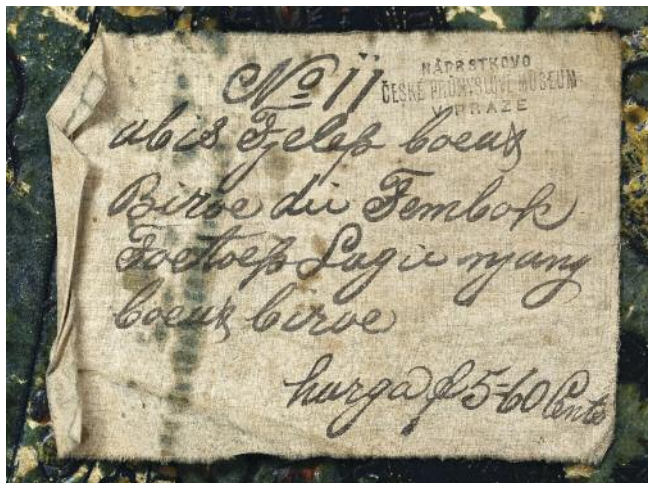 No 11
NÁPRSTKOVO
ČESKÉ PRŮMYSLOVÉ MUSEUM
V PRAZE
abis Tjelep boeat
Biroe die Tembok
Toetoep Lagie njang
boeat biroe
harga f 5-60 Cents